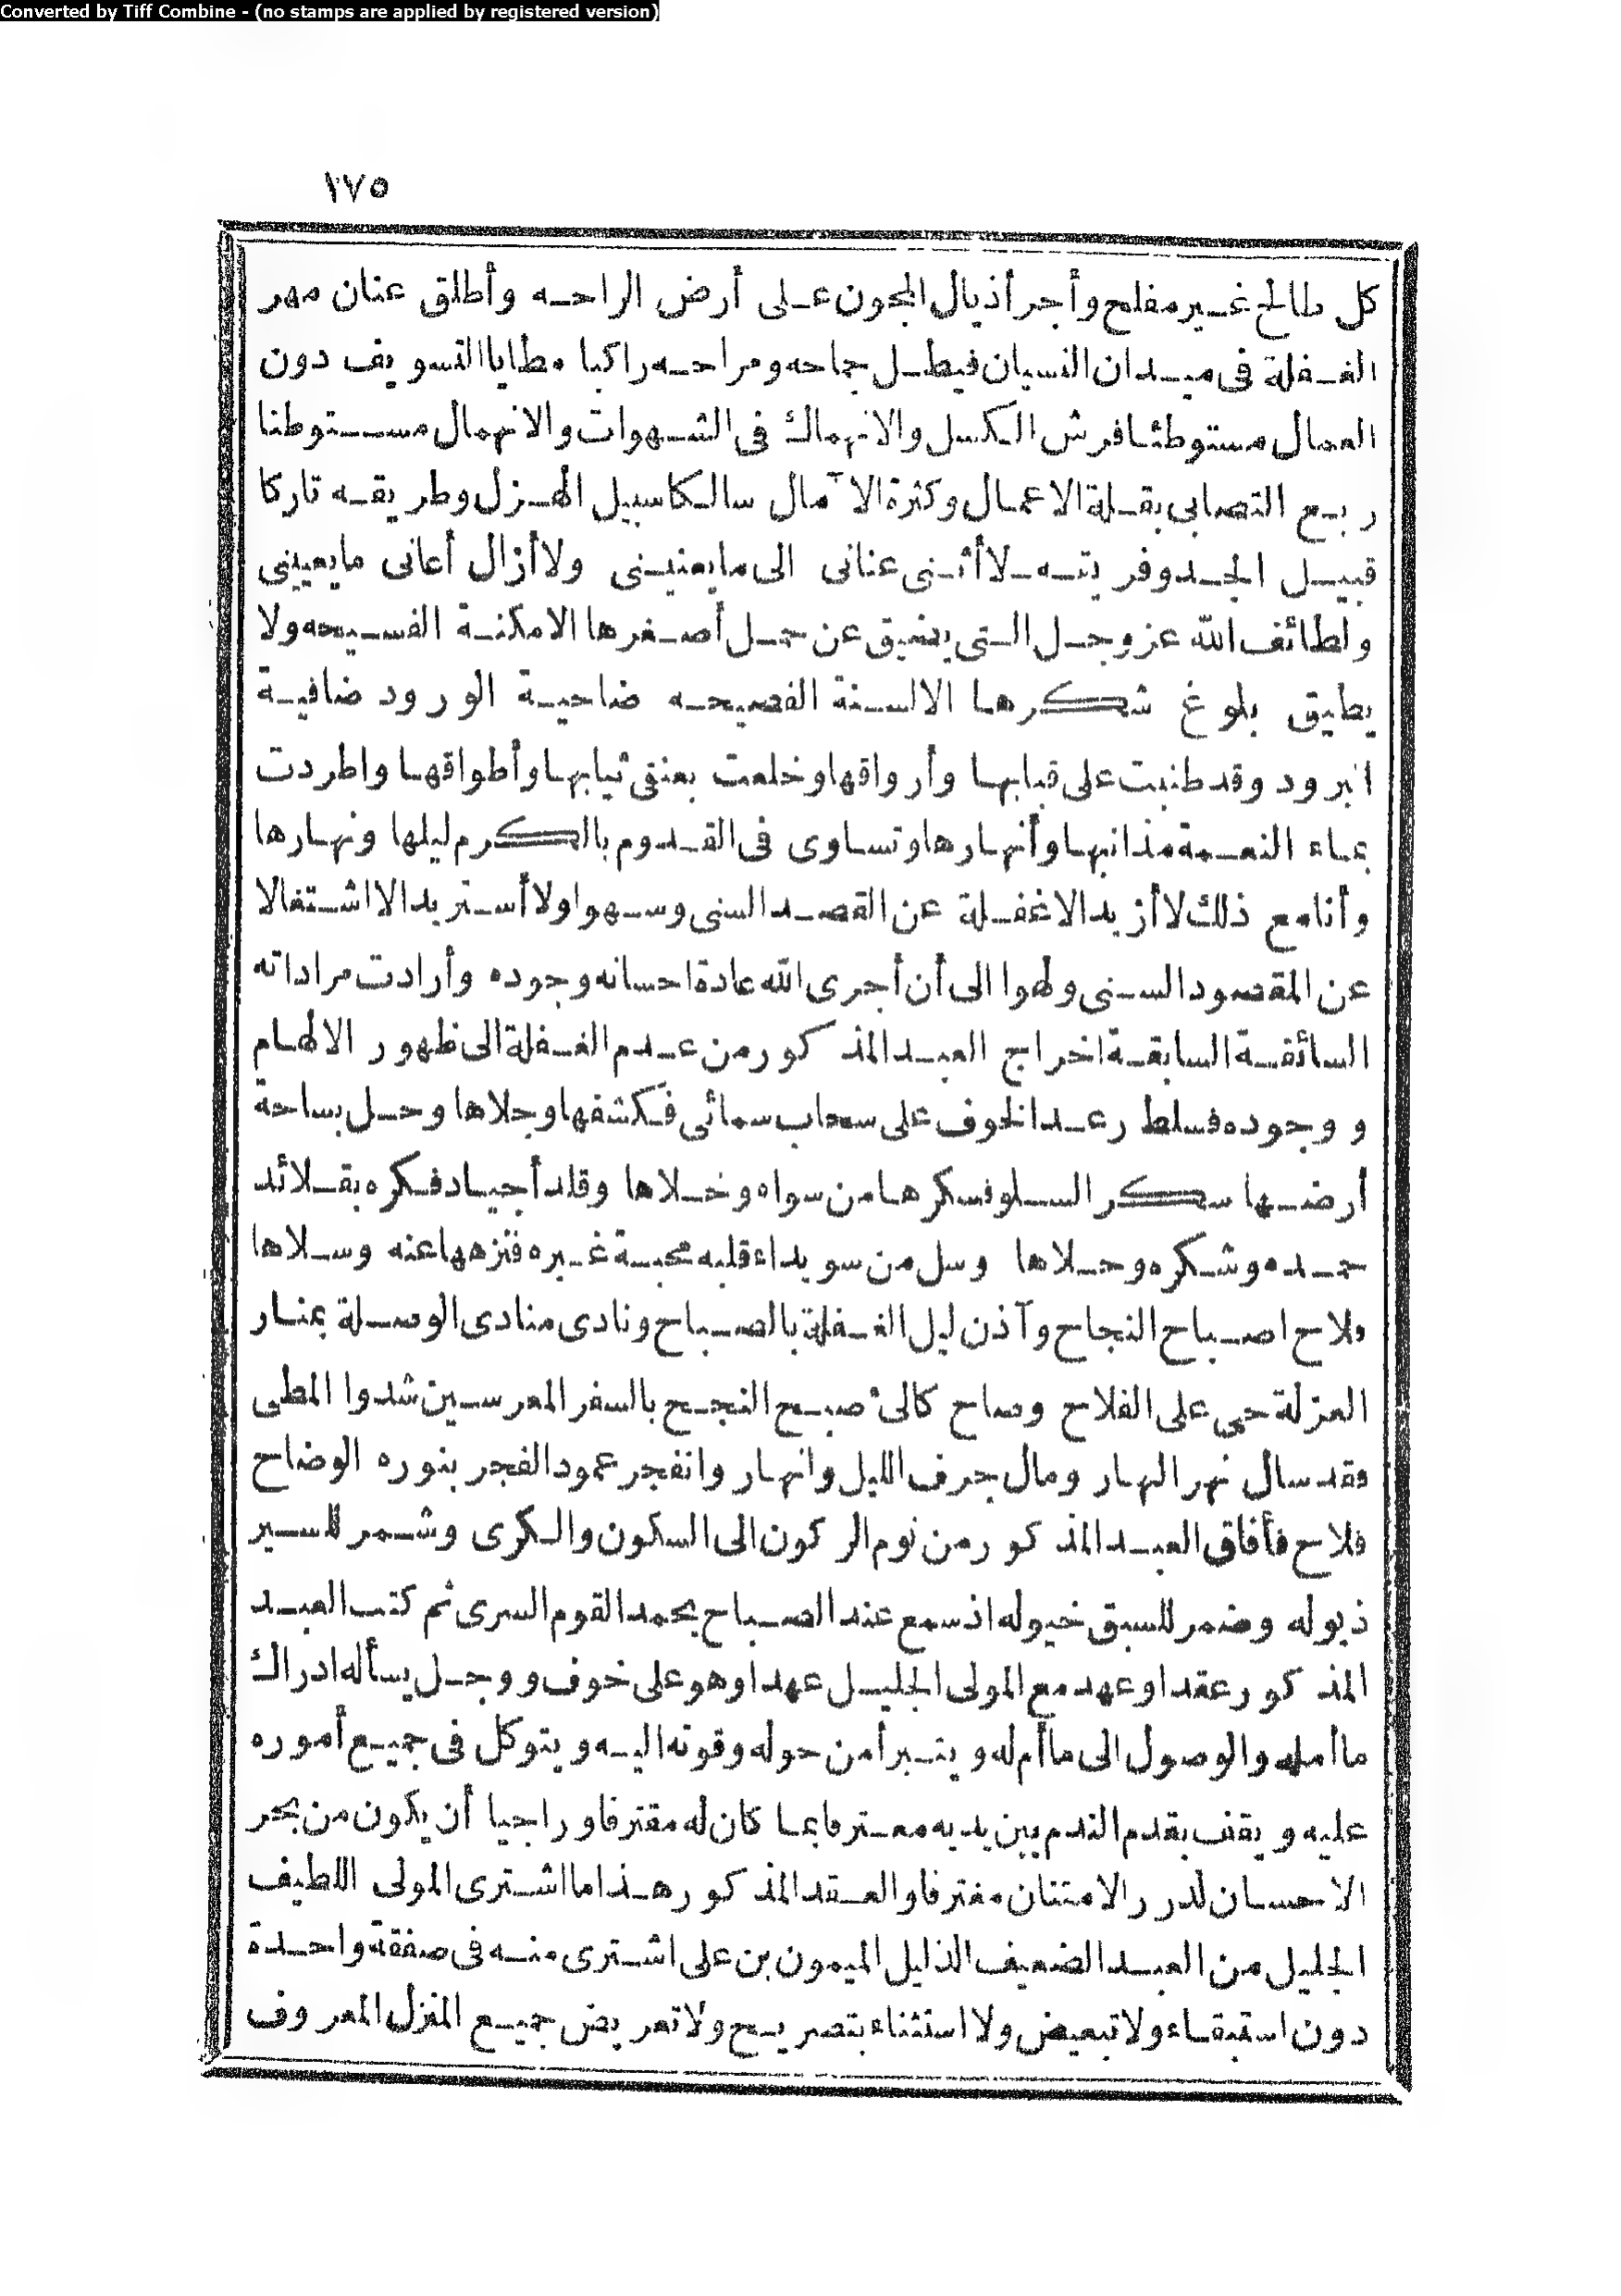 Converted by Tiff Combine - (no stamps are applied by registered version)
١٧٥
كل طالح غير مفلح وأجر أذيال المجون على أرض الراحه وأطلق عنان مهر
الغفلة فى ميدان النسيان فيطل جماحه ومراحه راكبا مطايا التسويف دون
العمال مستوطئا فرش الكسل والانهماك فى الشهوات والانهمال مستوطنا
ربع التصابى بقلة الاعمال وكثرة الآمال سالكا سبيل الهزل وطريقه تاركا
قبيل الجد وفريقه لا أثنى عنانى الى ما يعنينى ولا أزال أعانى ما يعيينى
ولطائف الله عز وجل التى يضيق عن حمل أصغرها الامكنة الفسيحه ولا
يطيق بلوغ شكرها الالسنة الفصيحه ضاحية الورود ضافية
البرود وقد طنبت على قبابها وأرواقها وخلعت بعنقى ثيابها وأطواقها واطردت
بماء النعمة مذانبها وأنهارها وتساوى فى القدوم بالكرم ليلها ونهارها
وأنا مع ذلك لا أزيد الا غفلة عن القصد السنى وسهوا ولا أستزيد الا اشتغالا
عن المقصود السنى ولهوا الى أن أجرى الله عادة احسانه وجوده وأرادت مراداته
السائقة السابقة اخراج العبد المذكور من عدم الغفلة الى ظهور الالهام
ووجوده فسلط رعد الخوف على سحاب سمائى فكشفها وجلاها وحل بساحة
أرضها سكر السلو فسكرها من سواه وخلاها وقلد أجياد فكره بقلائد
حمده وشكره وحلاها وسل من سويداء قلبه محبة غيره فنزهها عنه وسلاها
ولاح اصباح النجاح وآذن ليل الغفلة بالصباح ونادى منادى الوصلة بمنار
العزلة حى على الفلاح وصاح كالئ صبح النجح بالسفر المعرسين شدوا المطى
فقد سال نهر النهار ومال جرف الليل وانهار وانفجر عمود الفجر بنوره الوضاح
فلاح فأفاق العبد المذكور من نوم الركون الى السكون والكرى وشمر للسير
ذيوله وضمر للسبق خيوله اذ سمع عند الصباح يحمد القوم السرى ثم كتب العبد
المذكور عقدا وعهد مع المولى الجليل عهدا وهو على خوف ووجل يسأله ادراك
ما أمله والوصول الى ما أم له ويتبرأ من حوله وقوته اليه ويتوكل فى جميع أموره
عليه ويقف بقدم الندم بين يديه معترفا بما كان له مقترفا وراجيا أن يكون من بحر
الاحسان لدرر الامتنان مغترفا والعقد المذكور هذا ما اشترى المولى اللطيف
الجليل من العبد الضعيف الذليل الميمون بن على اشترى منه فى صفقة واحدة
دون استبقاء ولا تبعيض ولا استثناء بتصريح ولا تعريض جميع المنزل المعروف